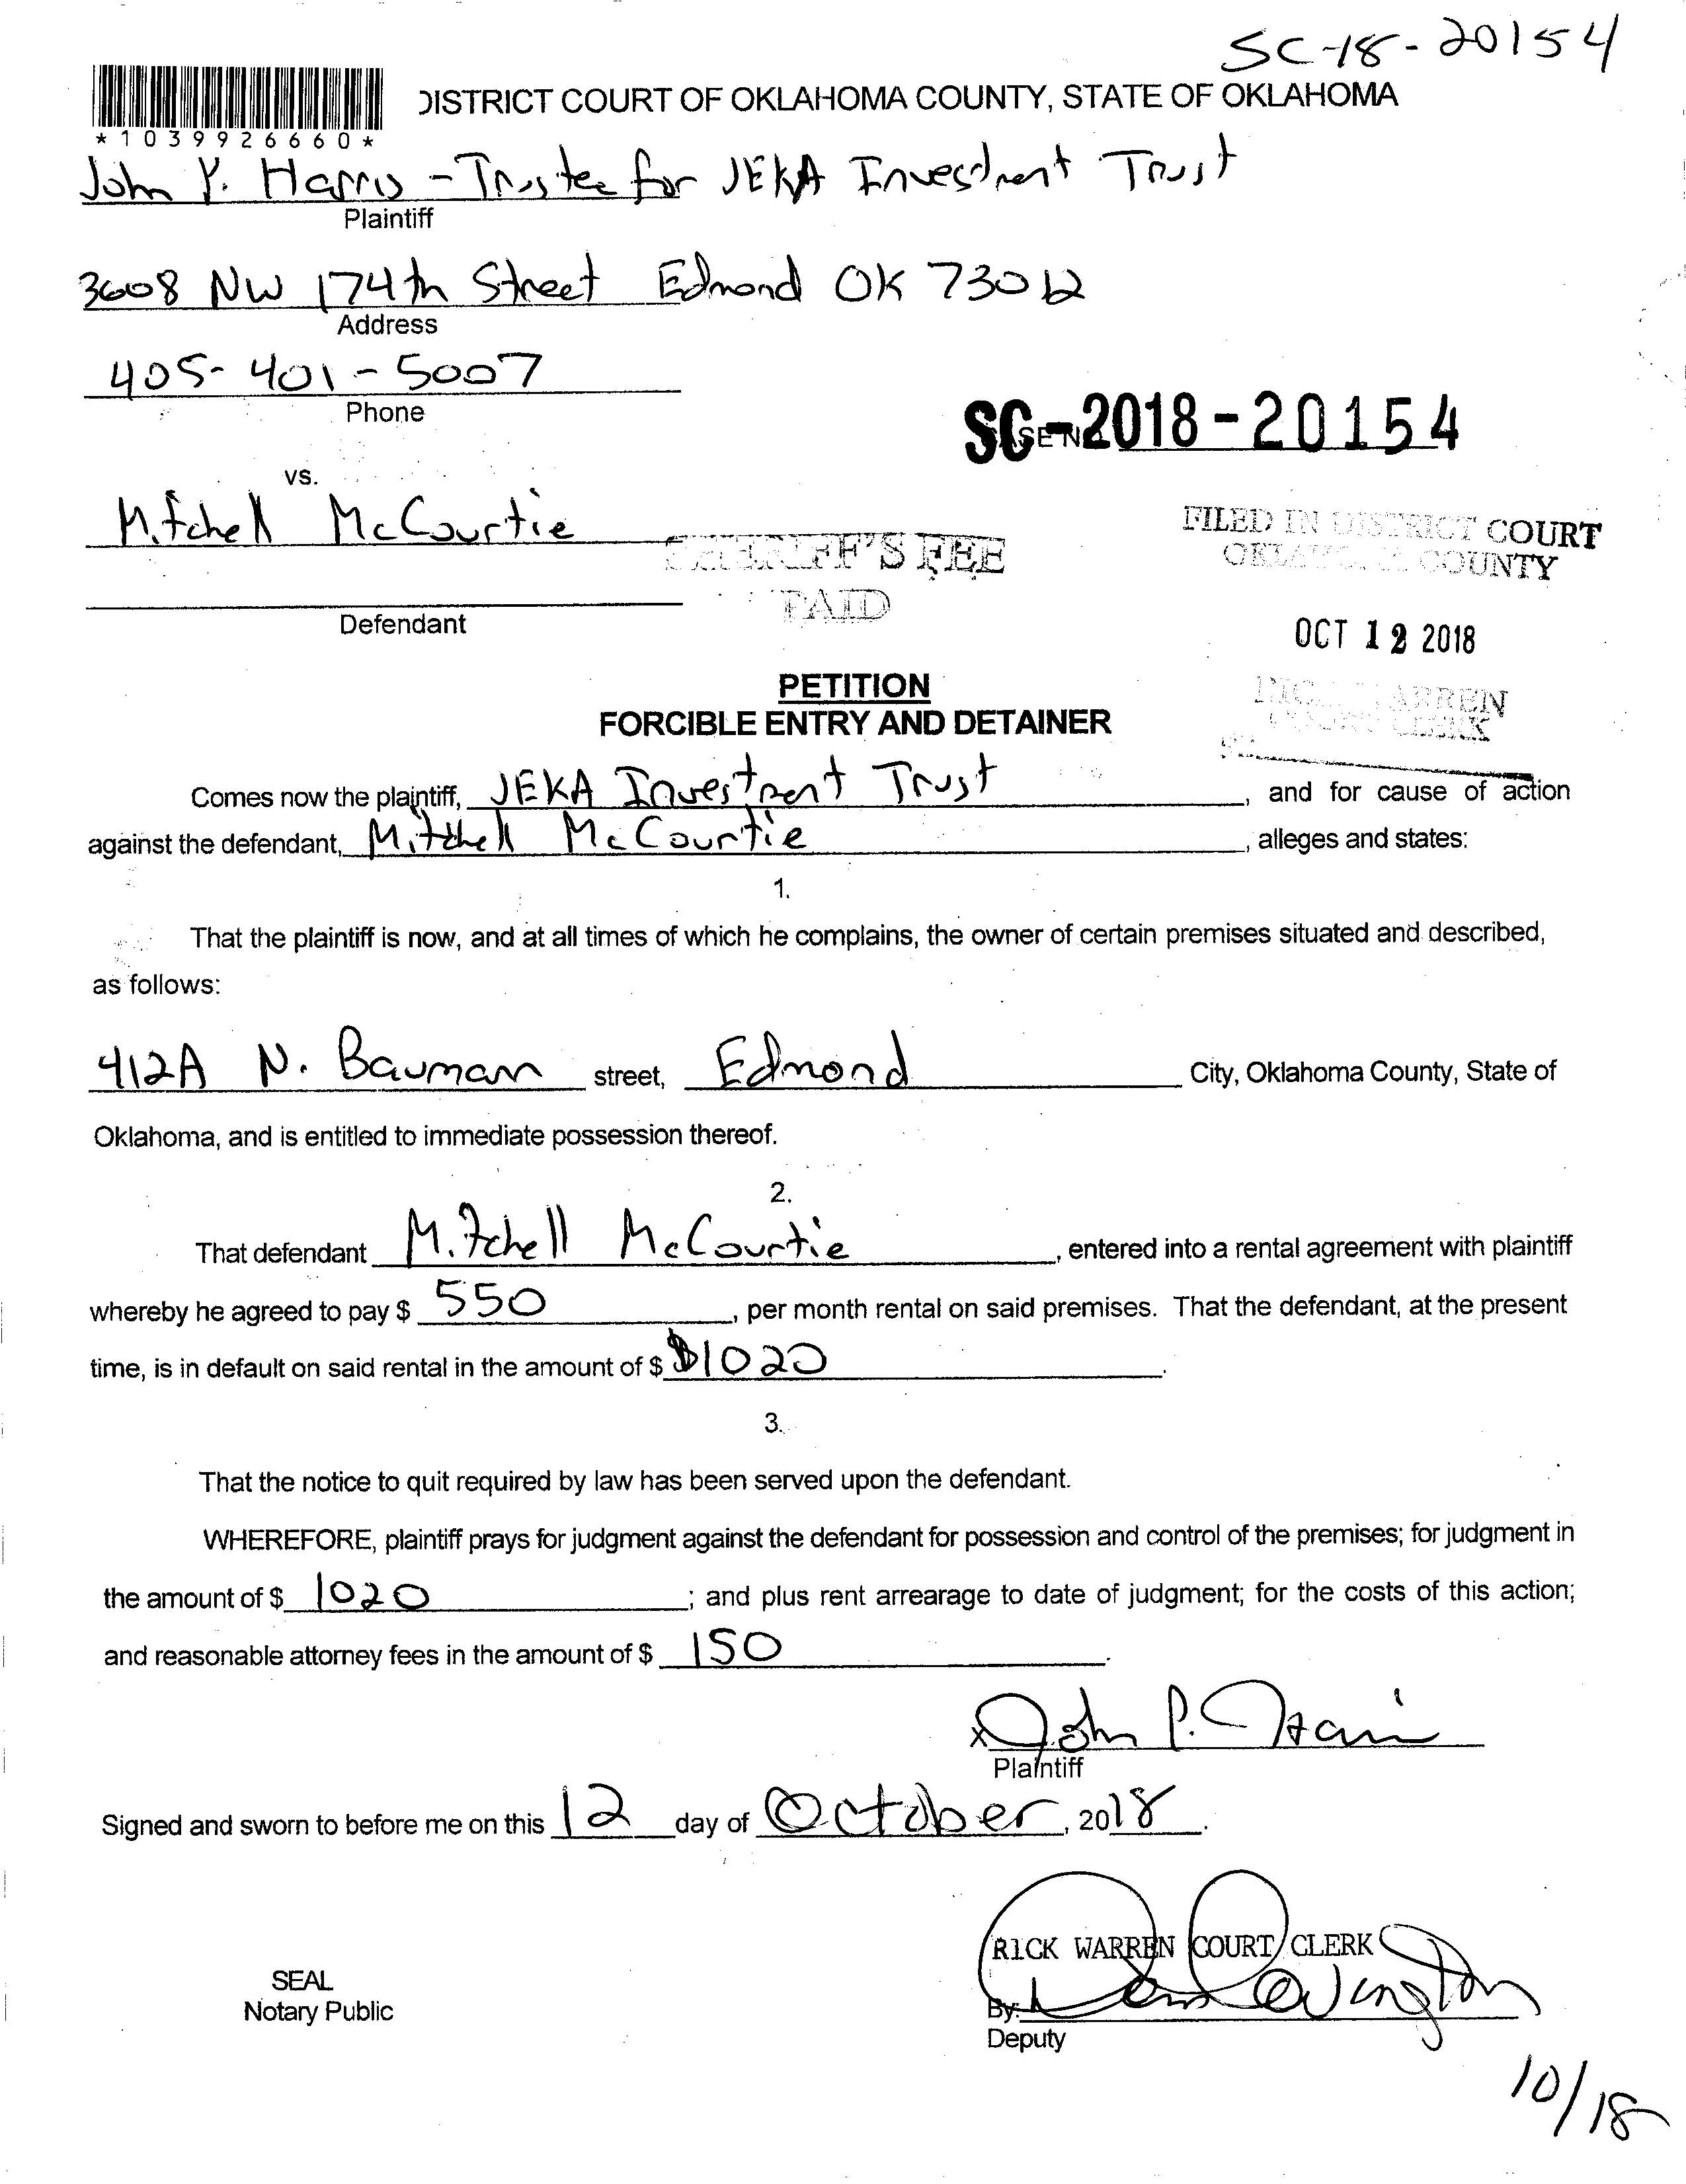 SC-18-20154
DISTRICT COURT OF OKLAHOMA COUNTY, STATE OF OKLAHOMA
*1039926660*
John P. Harris - Trustee for JEKA Investment Trust
Plaintiff
3608 NW 174th Street Edmond OK 73012
Address
405-401-5007
Phone
SC-2018-20154
vs.
Mitchell McCourtie
SHERIFF'S FEE
PAID
FILED IN DISTRICT COURT
OKLAHOMA COUNTY
Defendant
OCT 12 2018
PETITION
RICK WARREN
COURT CLERK
FORCIBLE ENTRY AND DETAINER
Comes now the plaintiff, JEKA Investment Trust, and for cause of action
against the defendant, Mitchell McCourtie, alleges and states:
1.
That the plaintiff is now, and at all times of which he complains, the owner of certain premises situated and described,
as follows:
412A N. Bauman street, Edmond City, Oklahoma County, State of
Oklahoma, and is entitled to immediate possession thereof.
2.
That defendant Mitchell McCourtie, entered into a rental agreement with plaintiff
whereby he agreed to pay $ 550, per month rental on said premises. That the defendant, at the present
time, is in default on said rental in the amount of $ $1020.
3.
That the notice to quit required by law has been served upon the defendant.
WHEREFORE, plaintiff prays for judgment against the defendant for possession and control of the premises; for judgment in
the amount of $ 1020; and plus rent arrearage to date of judgment; for the costs of this action;
and reasonable attorney fees in the amount of $ 150.
x John P. Harris
Plaintiff
Signed and sworn to before me on this 12 day of October, 2018.
RICK WARREN COURT CLERK
SEAL
Notary Public
By:
Deputy
10/18